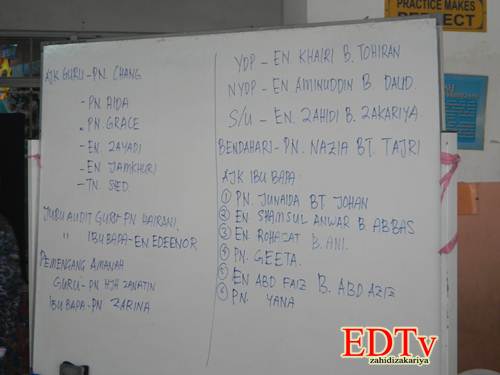 PRACTICE MAKES
AJK GURU - PN. CHANG
- PN. AIDA
- PN. GRACE
- EN. ZAYADI
- EN JAMKHURI
- TN. SIED.
JURU AUDIT GURU - PN HAIRANI.
" IBU BAPA - EN EDEENOR
PEMEGANG AMANAH
GURU - PN HJH ZANATIN
IBU BAPA - PN ZARINA
YDP - EN KHAIRI B. TOHIRAN
NYDP - EN AMINUDDIN B. DAUD.
S/U - EN. ZAHIDI B. ZAKARIYA.
BENDAHARI - PN. NAZIA BT. TAJRI
AJK IBU BAPA
① PN. JUNAIDA BT JOHAN
② EN SHAMSUL ANWAR B ABBAS
③ EN ROHAZAT B. ANI.
④ PN. GEETA.
⑤ EN ABD FAIZ B. ABD AZIZ
⑥ PN. YANA
EDTv
zahidizakariya